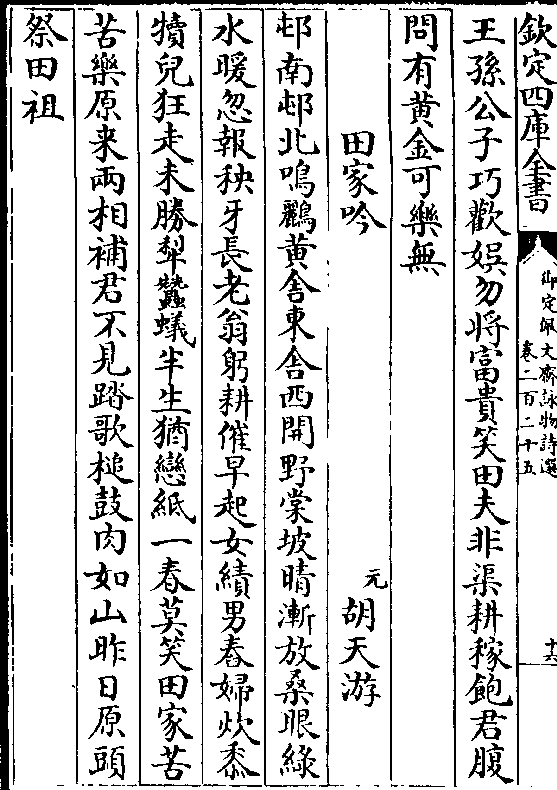 欽定四庫全書
御定佩文齋詠物詩選
卷二百二十五
十六
王孫公子巧歡娱勿將富貴笑田夫非渠耕稼飽君腹
問有黄金可樂無
田家吟
元
胡天游
邨南邨北鳴鸝黄舍東舍西開野棠坡晴漸放桑眼綠
水暖忽報秧牙長老翁躬耕催早起女績男舂婦炊黍
犢兒狂走未勝犂蠶蟻半生猶戀紙一春莫笑田家苦
苦樂原来兩相補君不見踏歌槌鼓肉如山昨日原頭
祭田祖